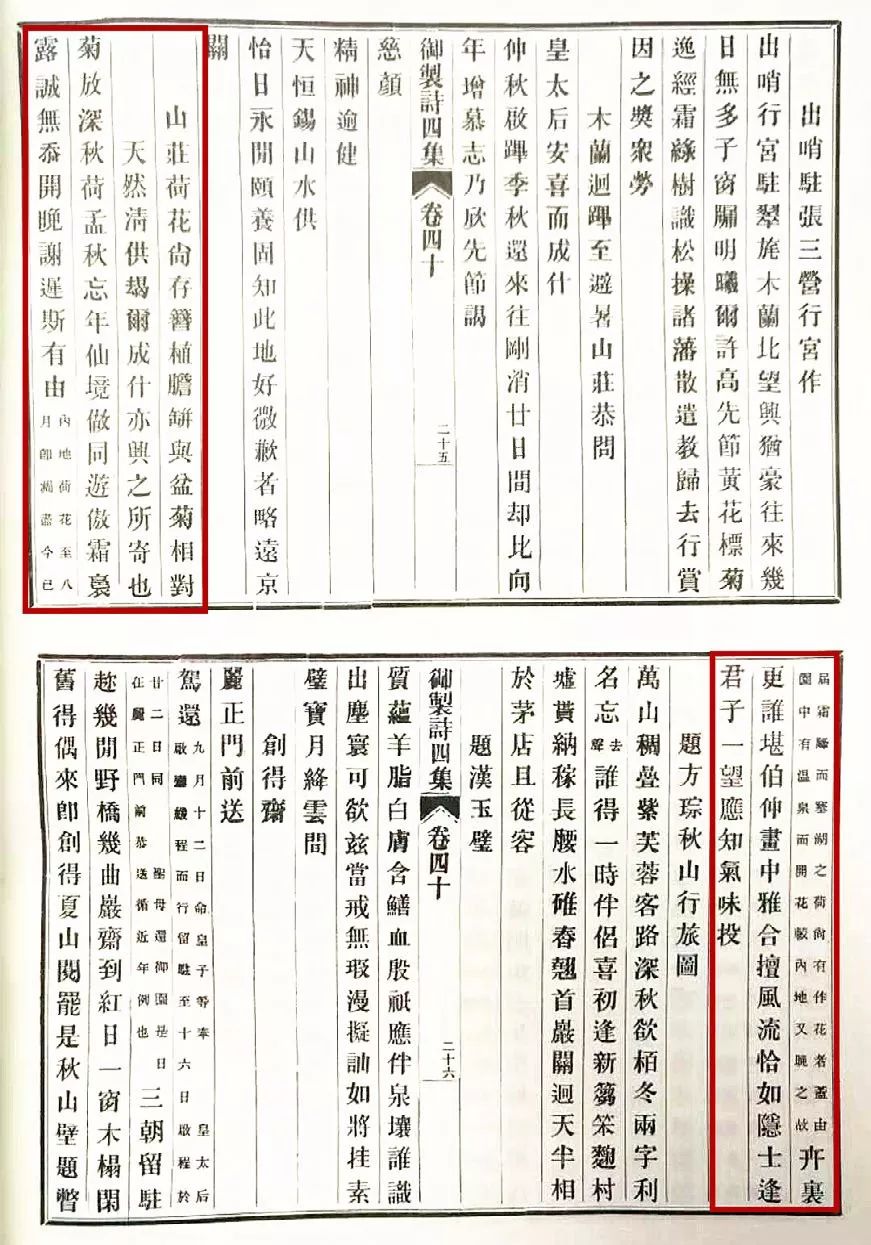 出哨駐張三營行宮作
出哨行宮駐翠旄木蘭北望興猶豪往來幾
日無多子窗牖明曦爾許高先節黃花標菊
逸經霜綠樹識松操諸藩散遣教歸去行賞
因之獎衆勞
木蘭迴蹕至避暑山莊恭問
皇太后安喜而成什
仲秋啟蹕季秋還來往剛消廿日間却比向
年增慕志乃欣先節謁
御製詩四集 卷四十 二十五
慈顏
精神逾健
天恒錫山水供
怡日永閒頤養固知此地好微歉者略遠京
關
山莊荷花尚存簪植膽缾與盆菊相對
天然清供朅爾成什亦興之所寄也
菊放深秋荷孟秋忘年仙境做同遊傲霜裛
露誠無忝開晚謝遲斯有由內地荷花至八
月卽凋盡今已
屆霜降而塞湖之荷尚有作花者蓋由
園中有溫泉而開花較內地又晚之故卉裏
更誰堪伯仲畫中雅合擅風流恰如隱士逢
君子一望應知氣味投
題方琮秋山行旅圖
萬山稠疊紫芙蓉客路深秋欲栢冬兩字利
名忘去聲誰得一時伴侶喜初逢新蒭笨麴村
墟貰納稼長腰水碓舂翹首巖關迴天半相
於茅店且從容
題漢玉璧
御製詩四集 卷四十 二十六
質蘊羊脂白膚含鱔血殷祇應伴泉壤誰識
出塵寰可欲茲當戒無瑕漫擬訕如將挂素
璧寶月絳雲間
創得齋
麗正門前送
駕還九月十二日命皇子等奉 皇太后
啟鑾緩程而行留駐至十六日啟程於
廿二日同 聖母還御園是日
在麗正門前恭送循近年例也三朝留駐
趂幾閒野橋幾曲巖齋到紅日一窗木榻閑
舊得偶來卽創得夏山閱罷是秋山壁題瞥